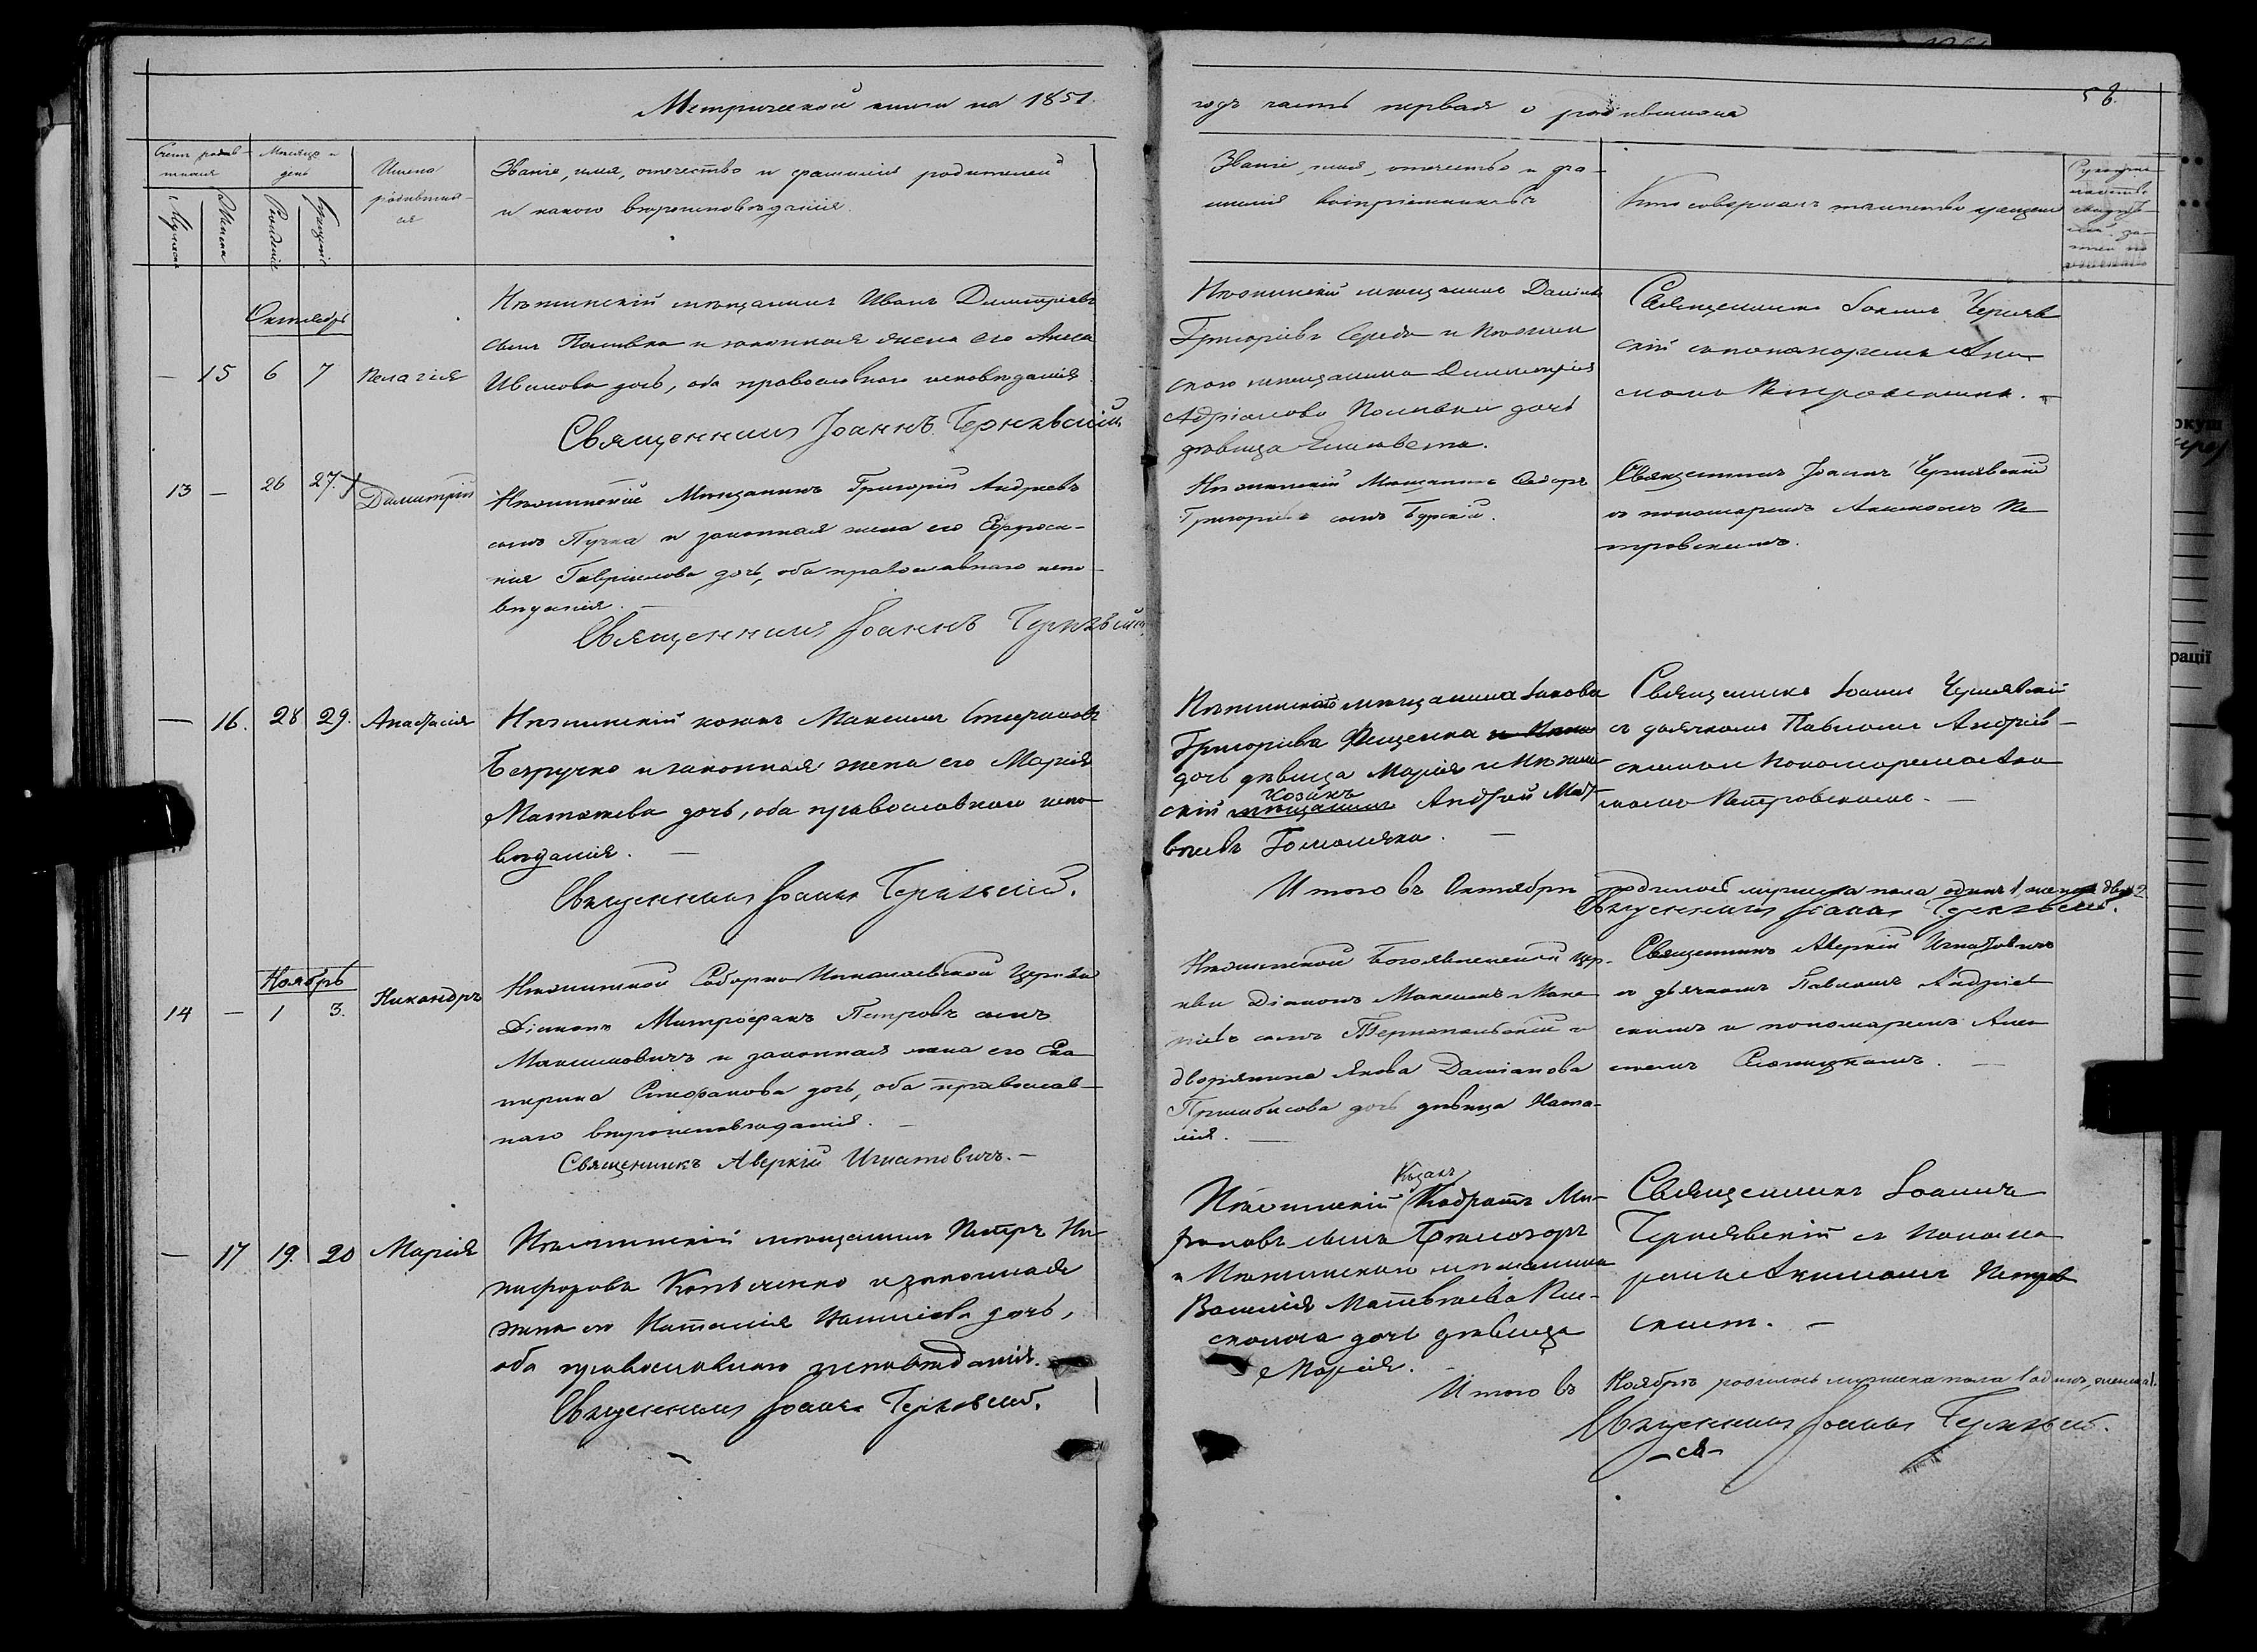 Метрической книги на 1851.
годъ часть первая о родившихся
58.
Счетъ родив-
шихся
Мѣсяцъ и
день
Имена
родивших-
ся
Званіе, имя, отечество и фамилія родителей
и какого вѣроисповѣданія.
Мужеска
Женска
Рожденія
Крещенія
Званіе, имя, отечество и фа-
милія воспріемниковъ
Кто совершалъ таинство крещенія
Октябрь
— 15 6 7 Пелагія
Нѣжинскій мѣщанинъ Иванъ Димитріевъ
сынъ Поливка и законная жена его Анна
Иванова дочь, оба православнаго исповѣданія.
Священникъ Іоаннъ Чернявскій
Нѣжинскій мѣщанинъ Даніилъ
Григоріевъ Середа и Нѣжин
скаго мѣщанина Димитрія
Адріанова Поливки дочь
дѣвица Елисавета.
Священникъ Іоаннъ Черняв
скій съ пономаремъ Аки
момъ Петровскимъ.
13 — 26 27. Димитрій
Нѣжинскій Мѣщанинъ Григорій Андреевъ
сынъ Пучка и законная жена его Евфроси-
нія Гавріилова дочь, оба православнаго испо-
вѣданія.
Священникъ Іоаннъ Чернявскій
Нѣжинскій Мѣщанинъ Ѳедоръ
Григорьевъ сынъ Бурскій.
Священникъ Іоаннъ Чернявскій
съ пономаремъ Акимомъ Пе
тровскимъ.
— 16. 28 29. Анастасія
Нѣжинскій козакъ Максимъ Стефановъ
Безручко и законная жена его Марія
Матвѣева дочь, оба православнаго испо-
вѣданія. —
Священникъ Іоаннъ Чернявскій.
Нѣжинскаго мѣщанина Іакова
Григоріева Фещенка
дочь дѣвица Марія и Нѣжин-
козакъ
скій мѣщанинъ Андрей Мат-
вѣевъ Гомоляка. —
Священникъ Іоаннъ Чернявскій
съ дьячкомъ Павломъ Андріев-
скимъ и пономаремъ Аки
момъ Петровскимъ. —
Итого въ Октябрѣ родилось мужеска пола одинъ 1 женска два 2
Священникъ Іоаннъ Чернявскій.
Ноябрь
14 — 1 3. Никандръ
Нѣжинской Соборно Николаевской Церкви
Діаконъ Митрофанъ Петровъ сынъ
Максимовичъ и законная жена его Ека
терина Стефанова дочь, оба православ-
наго вѣроисповѣданія. —
Священникъ Аверкій Игнатовичъ. —
Нѣжинской Богоявленской Цер-
кви Діаконъ Максимъ
сынъ Тернопольскій и
дворянина Якова Даміанова
дочь дѣвица Ната-
лія. —
Священникъ Аверкій Игнатовичъ
съ дьячкомъ Павломъ Андріев
скимъ и пономаремъ
— 17 19. 20 Марія
Нѣжинскій мѣщанинъ Петръ Ни-
кифоровъ и законная
жена его Наталія дочь,
оба православнаго исповѣданія.
Священникъ Іоаннъ Чернявскій.
Козакъ
Нѣжинскій Кодратъ Ми-
роновъ сынъ Бѣлозоръ
и Нѣжинскаго мѣщанина
Василія Матвѣева
дочь дѣвица
Марія.
Священникъ Іоаннъ
Чернявскій съ Понома
ремъ Акимомъ Петров
скимъ. —
Итого въ Ноябрѣ родилось мужеска пола 1 одинъ, женска 1.
Священникъ Іоаннъ Чернявскій.